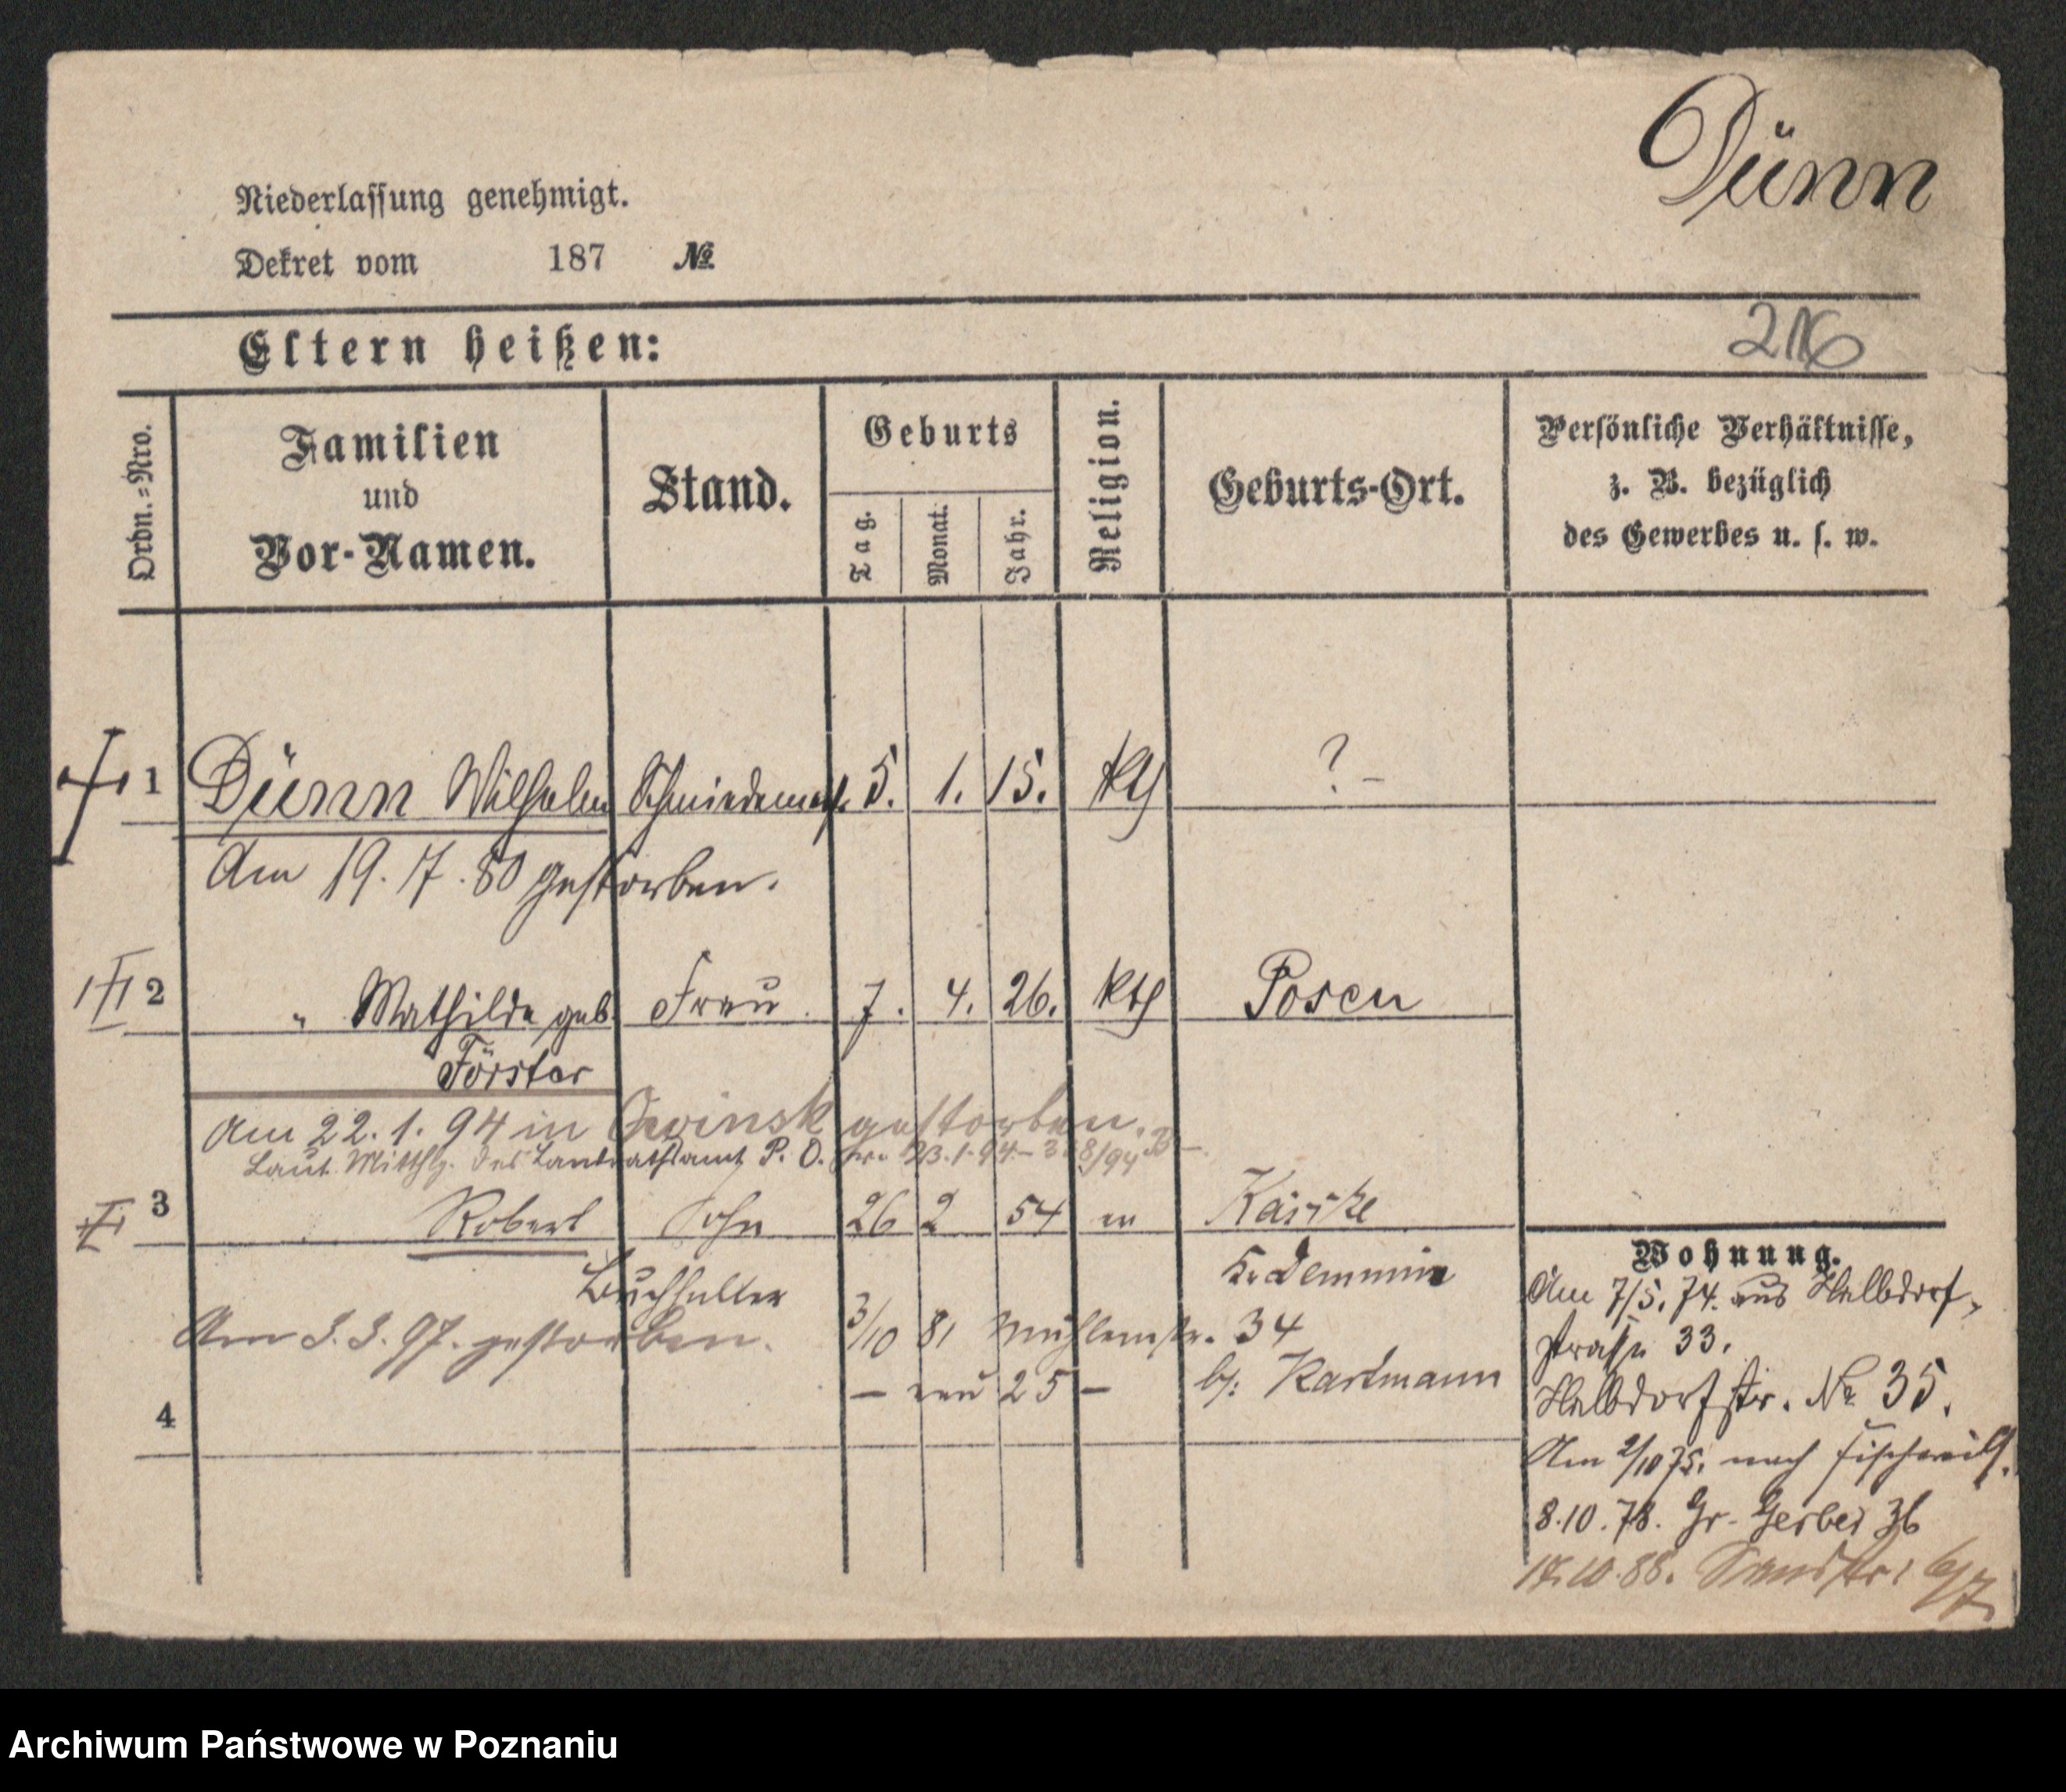 Dünn
Niederlassung genehmigt.
Dekret vom 187 №
Eltern heißen:
216
Ordn.=Nro.
Familien
und
Vor-Namen.
Stand.
Geburts
Tag.
Monat.
Jahr.
Religion.
Geburts-Ort.
Persönliche Verhältnisse,
z. B. bezüglich
des Gewerbes u. s. w.
1 Dünn Wilhelm Schmiedemstr. 5. 1. 15. kth ? -
Am 19. 7. 80 gestorben.
2 " Mathilde geb. Frau 7. 4. 26. kth Posen
Förster
Am 22. 1. 94 in Owinsk gestorben.
Laut Mitthlg. des Landrathsamt P. O. 23.1.94
3 Robert Sohn 26 2 54
Kr. Demmin
Buchhalter
Am 3. 3. 97. gestorben.
3/10 81 Mühlenstr. 34
- neu 25 - b/: Kartmann
4
Wohnung.
Am 7/5. 74. aus Halbdorf-
straße 33.
Halbdorfstr. № 35.
Am 2/10 75. nach
8.10.78. Gr. Gerber 36
17.10.88. Sandstr. 6/7.
Archiwum Państwowe w Poznaniu